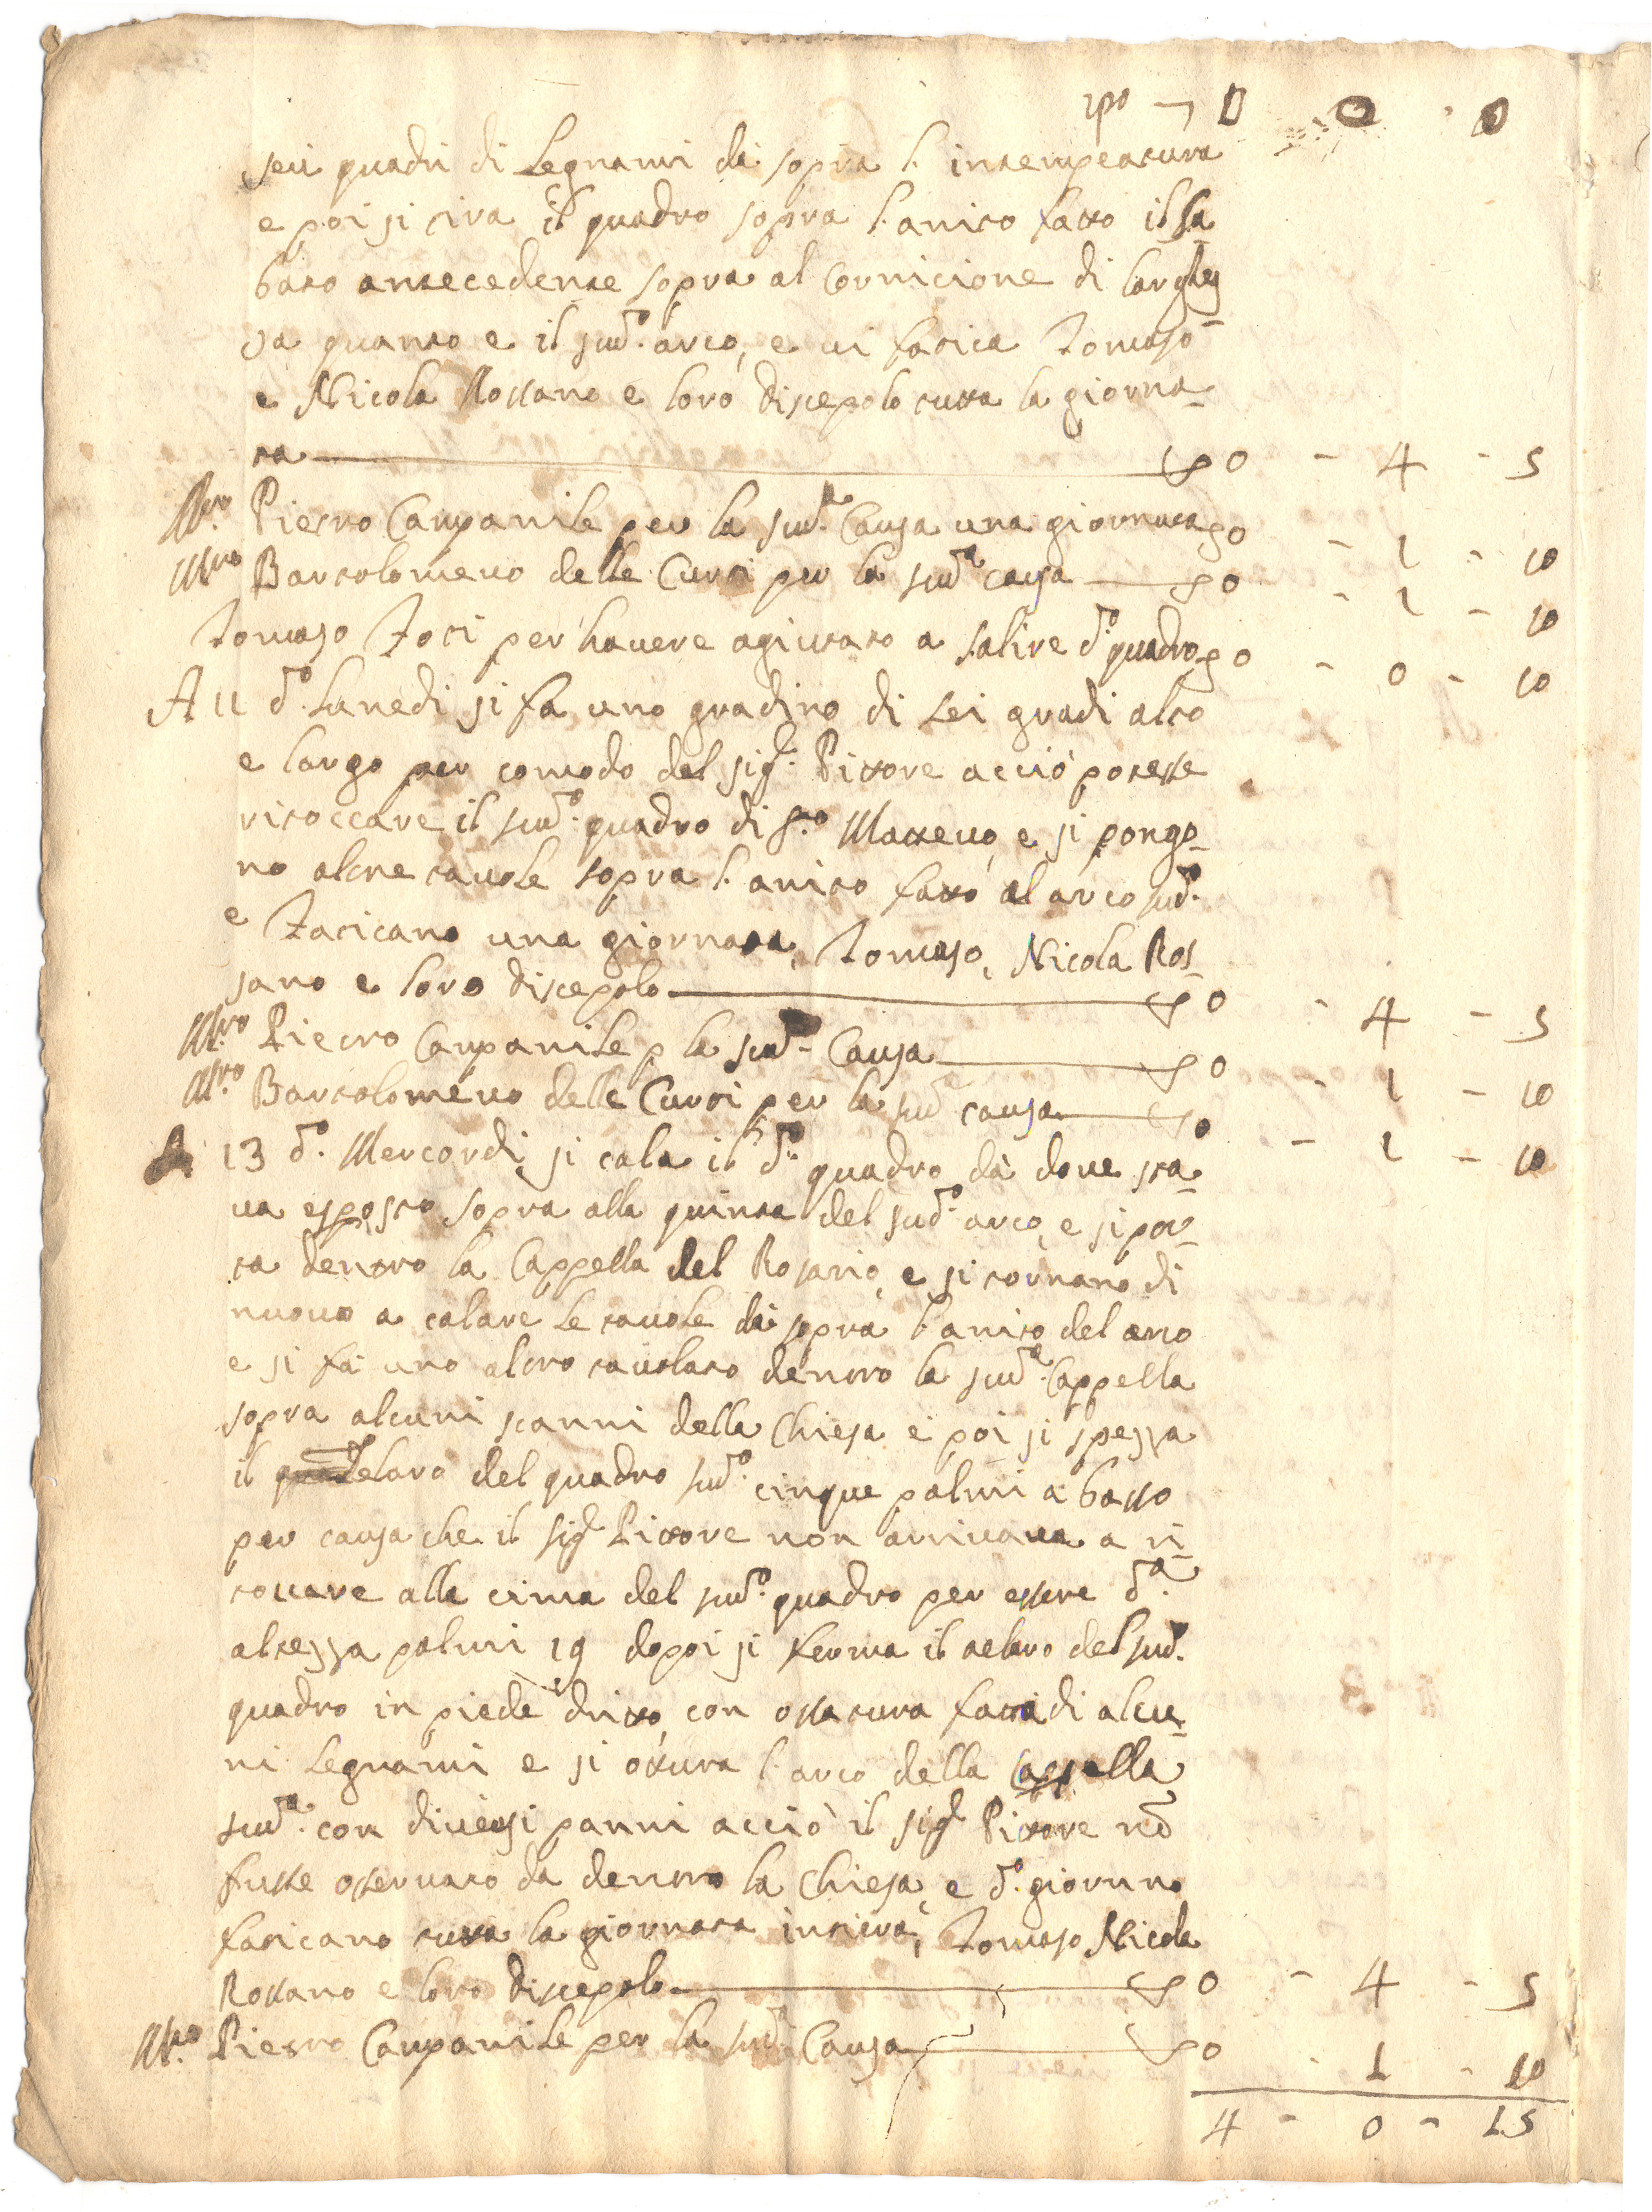 0 0 0
seu quadri di Legnami da sopra l'intempeatura
e poi si tira il quadro sopra l'anito fatto il Sa-
bato antecedente sopra al Cornicione di larghez
za quanto e il sud.o arco, e vi fatica Tomaso
e Nicola Rossano e loro discepolo tutta la giorna-
ta 0 - 4 - 5
M.ro Pietro Campanile per la sud.a Causa una giornata 0 - 1 - 10
M.ro Bartolomeuo delle Curti per la sud.a causa 0 - 1 - 10
Tomaso Toti per hauere agiutato a salire d.o quadro 0 - 0 - 10
A 11 d.o Lunedi si fa uno gradino di sei gradi alto
e largo per comodo del sig.r Pittore acciò potesse
ritoccare il sud.o quadro di S.to Matteuo, e si pongo-
no altre tauole sopra l'anito fatto al arco sud.o
e Faticano una giornata, Tomaso, Nicola Ros-
sano e loro discepolo 0 - 4 - 5
M.ro Pietro Campanile p la sud.a Causa 0 - 1 - 10
M.ro Bartolomeuo delle Curti per la sud.a causa 0 - 1 - 10
A 13 d.o Mercordi si cala il d.o quadro da doue sta-
ua esposto sopra alla quinta del sud.o arco, e si por-
ta dentro la Cappella del Rosario, e si tornano di
nuouo a calare le tauole da sopra l'anito del arco
e si fa uno altro tauolato dentro la sud.a Cappella
sopra alcuni scanni della Chiesa e poi si spezza
il telaro del quadro sud.o cinque palmi a basso
per causa che il Sig.r Pittore non arriuaua a ri-
toccare alla cima del sud.o quadro per essere d.a
altezza palmi 19 dopoi si ferma il telaro del sud.o
quadro in piede dritto, con ossatura fatta di alcu-
ni Legnami e si ottura l'arco della Cappella
sud.a con diuersi panni acciò il sig.r Pittore nō
fusse osseruato da dentro la Chiesa, e d.o giorno
faticano tutta la giornata intiera, Tomaso Nicola
Rossano e loro discepolo 0 - 4 - 5
M.ro Pietro Campanile per la sud.a Causa 0 - 1 - 10
4 - 0 - 15